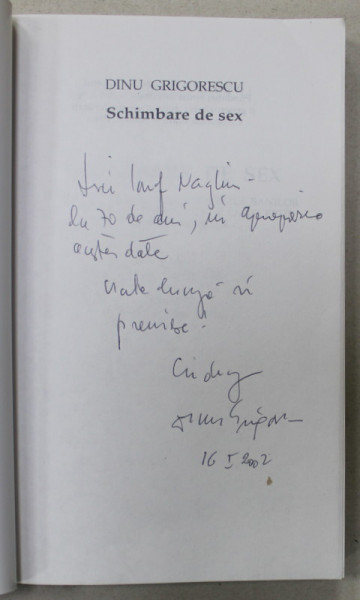 DINU GRIGORESCU
Schimbare de sex
Lui Iosif Naghiu -
La 70 de ani, în apropierea
acestei date
viață lungă și
premise!
Cu drag
Dinu Grigore
16 I 2002